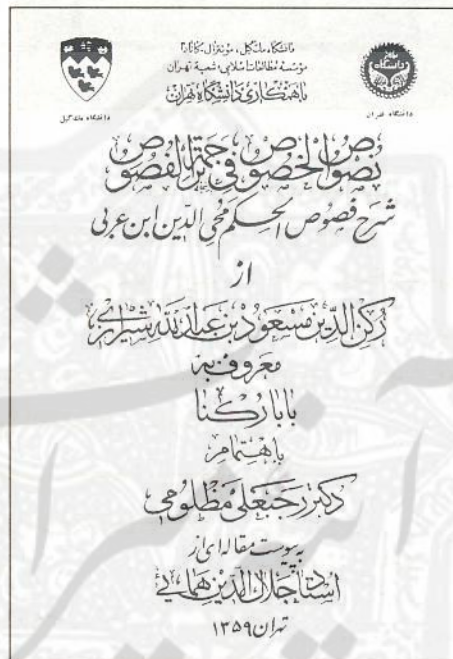 دانشگاه مك گیل، مونترال کانادا
مؤسسه مطالعات اسلامی، شعبه تهران
با همکاری دانشگاه تهران
دانشگاه مك گیل
دانشگاه تهران
نصوص الخصوص فی ترجمة الفصوص
شرح فصوص الحکم محی الدین ابن عربی
از
رکن الدین مسعود بن عبدالله شیرازی
معروف به
بابا رکنا
باهتمام
دکتر رجبعلی مظلومی
به پیوست مقاله ای از
استاد جلال الدین همائی
تهران ۱۳۵۹